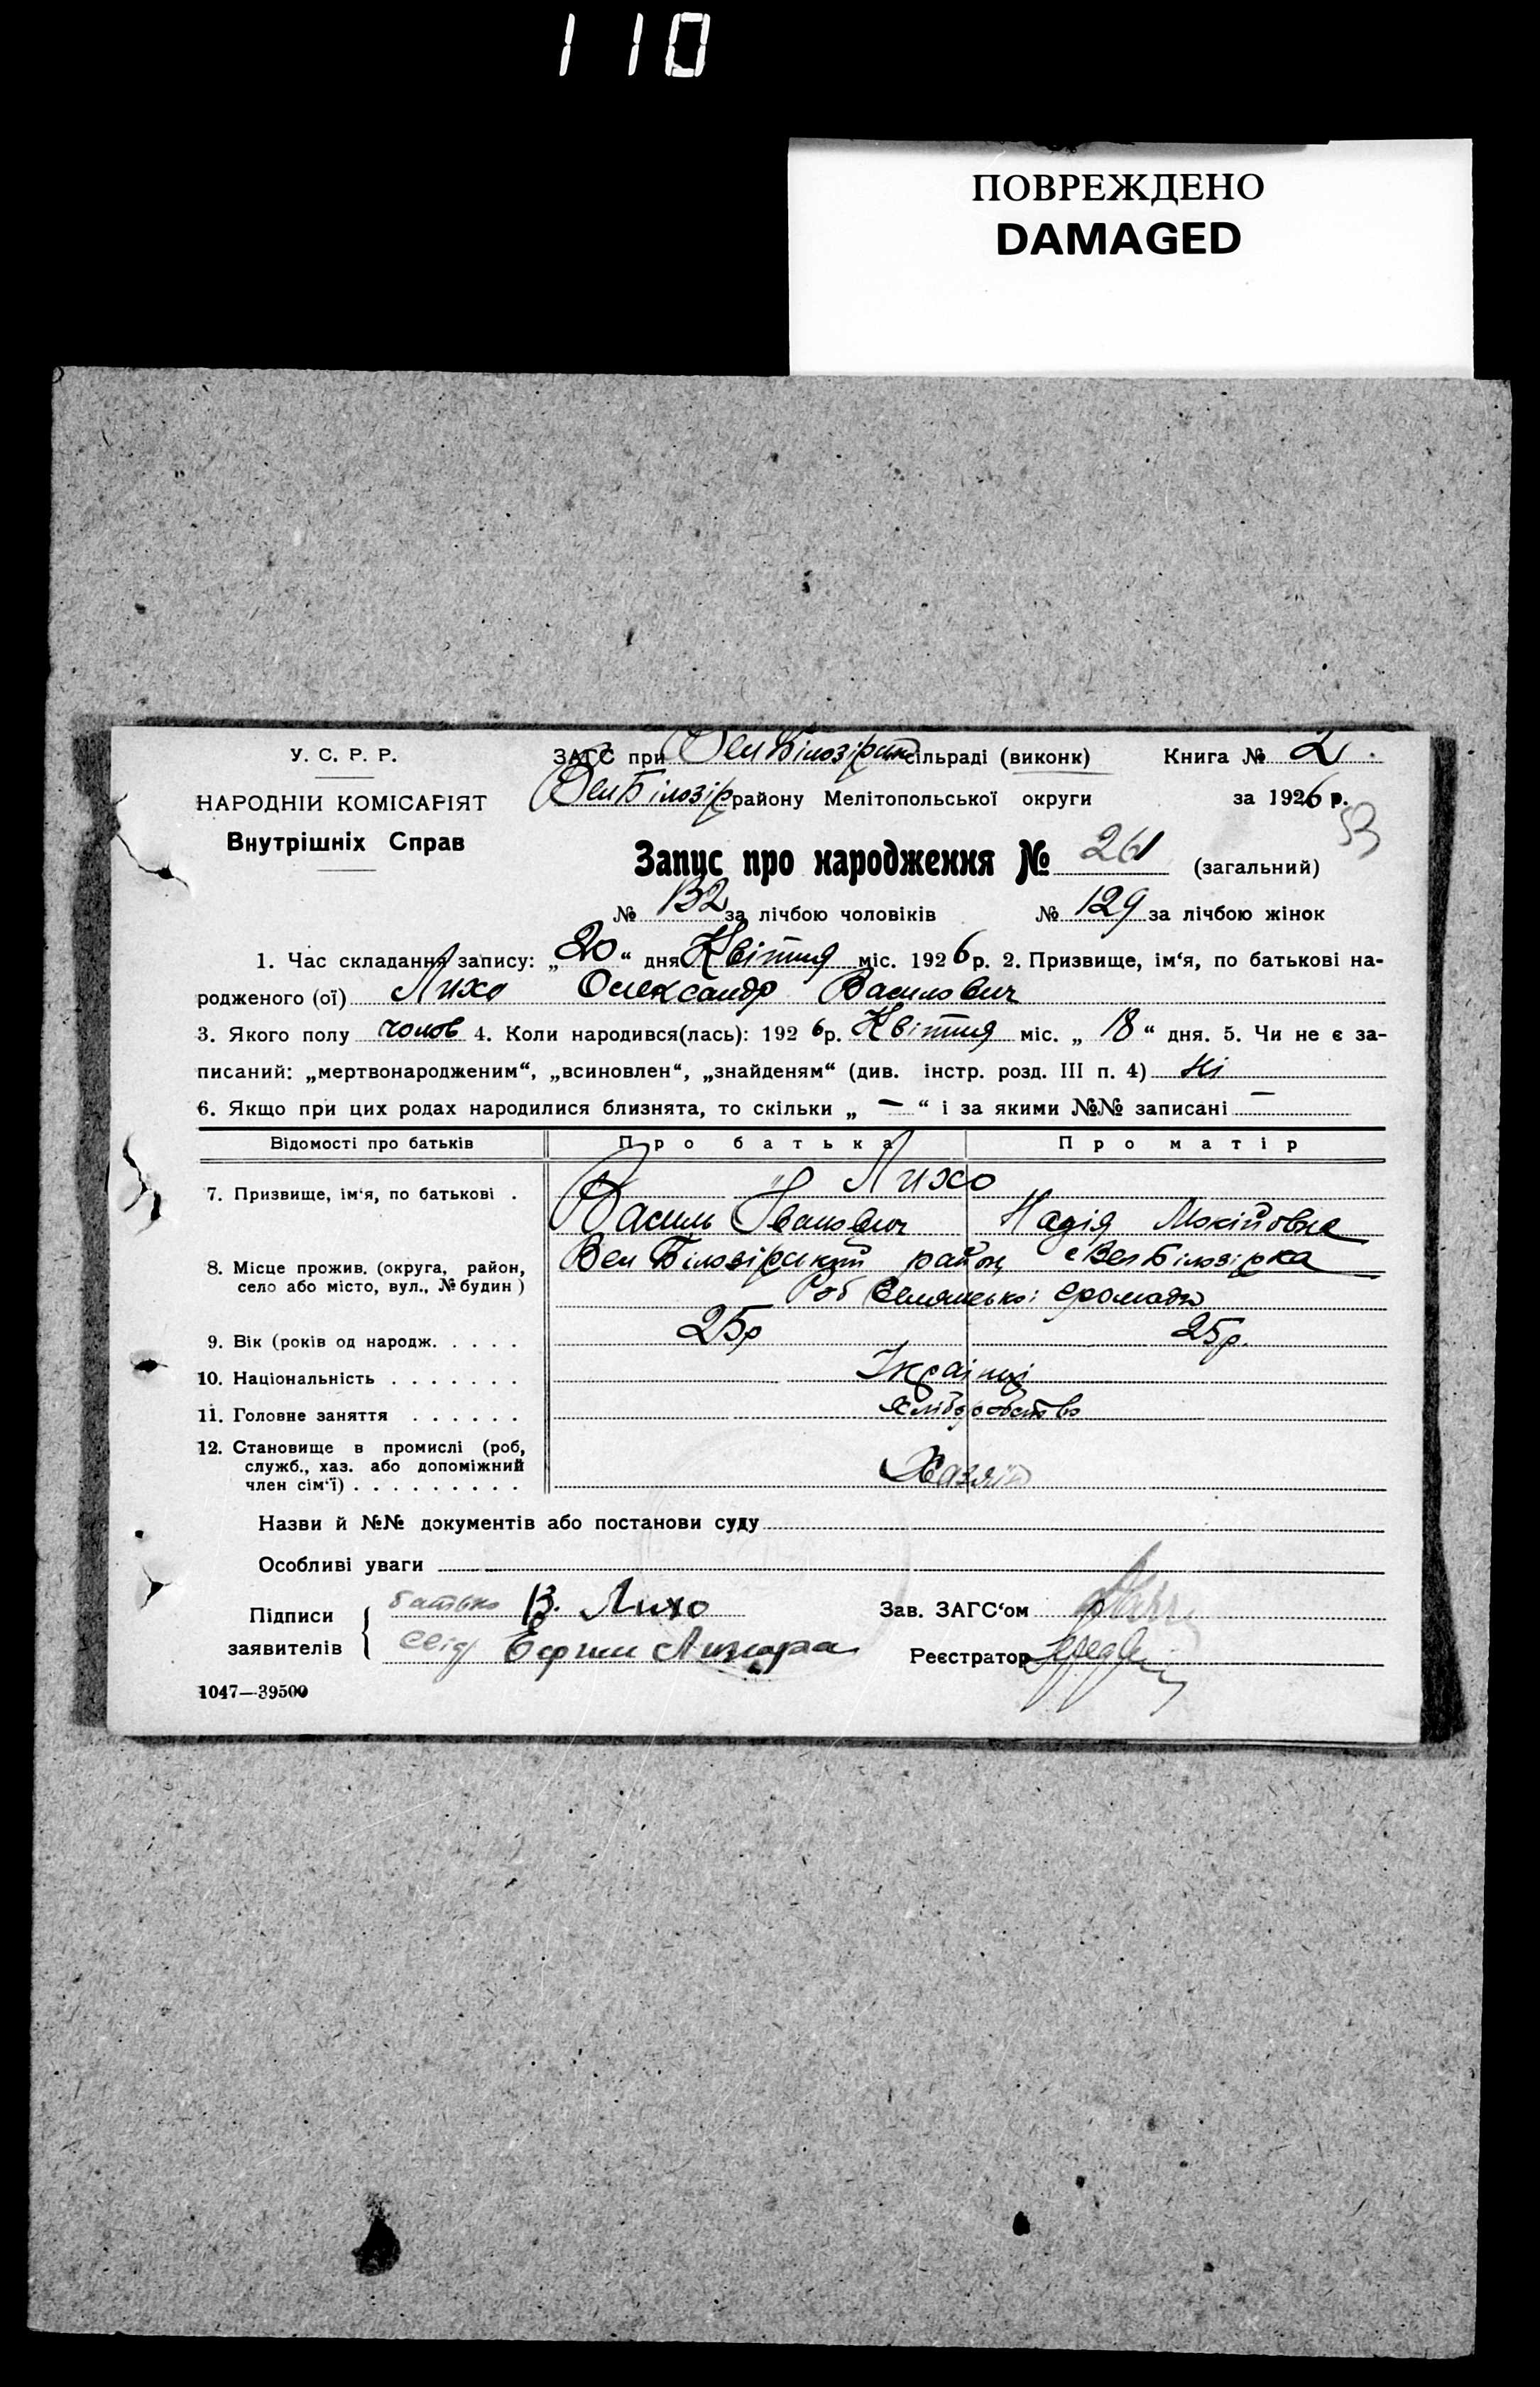 110
ПОВРЕЖДЕНО
DAMAGED
У. С. Р. Р.
НАРОДНІЙ КОМІСАРІЯТ
Внутрішніх Справ
ЗАГС при Вел Білозірській сільраді (виконк) Книга № 2
Вел Білозір району Мелітопольської округи за 1926 р.
53
Запис про народження № 261 (загальний)
№ 132 за лічбою чоловіків № 129 за лічбою жінок
1. Час складання запису: „20“ дня Квітня міс. 1926 р. 2. Призвище, ім‘я, по батькові на-
родженого (ої) Лихо Олександр Василович
3. Якого полу чолов 4. Коли народився(лась): 1926 р. Квітня міс. „18“ дня. 5. Чи не є за-
писаний: „мертвонародженим“, „всиновлен“, „знайденям“ (див. інстр. розд. III п. 4) Ні
6. Якщо при цих родах народилися близнята, то скільки „—“ і за якими №№ записані —
Відомості про батьків Про батька Про матір
7. Призвище, ім‘я, по батькові . Лихо
Василь Іванович Надія Мокійовна
8. Місце прожив. (округа, район,
село або місто, вул., № будин ) Вел Білозірський район с Вел Білозірка
Селянської громади
9. Вік (років од народж. . . . . 25р 25р.
10. Національність . . . . . . . Українці
11. Головне заняття . . . . . . хліборобство
12. Становище в промислі (роб,
служб., хаз. або допоміжний
член сім‘ї) . . . . . . . . . Хазяїн
Назви й №№ документів або постанови суду
Особливі уваги
Підписи
заявителів
батько В. Лихо
свід
Зав. ЗАГС‘ом
Реєстратор
1047—39500